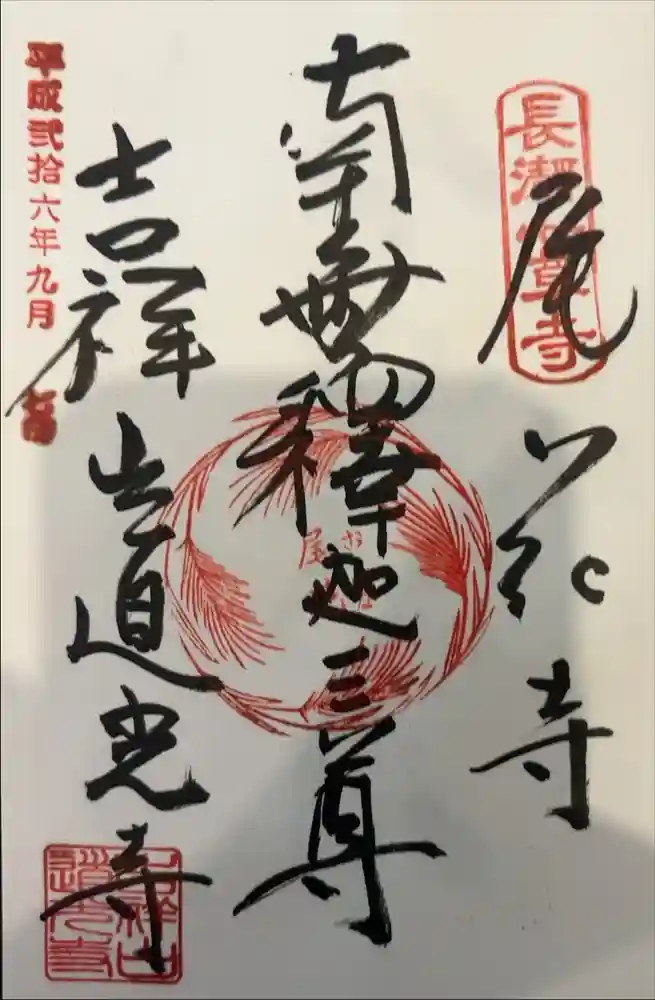 長瀞七草寺
尾花寺
南無釋迦三尊
吉祥山道光寺
吉祥山
道光寺
平成弐拾六年九月